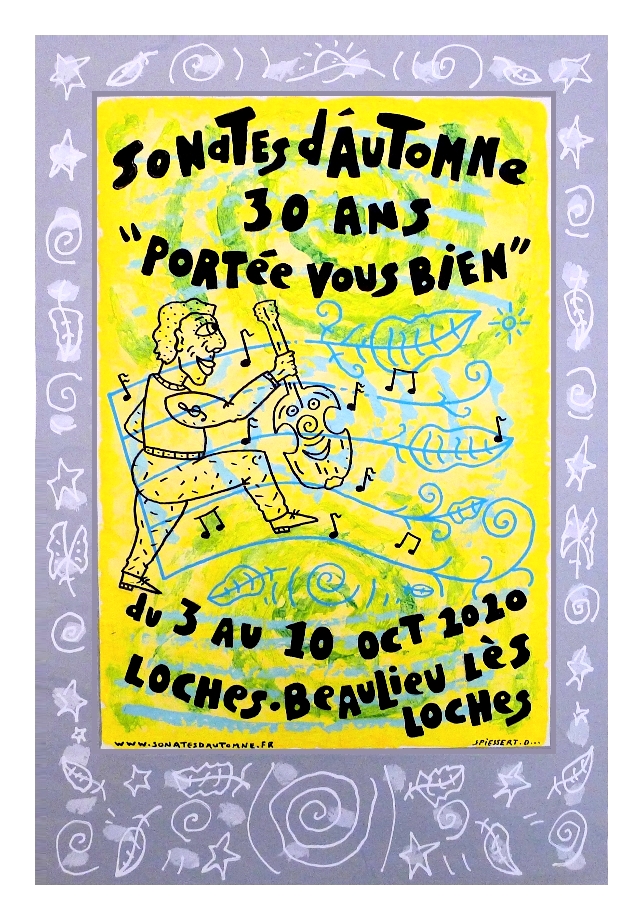 SONATES d'ÁUTOMNE
30 ANS
"PORTÉE VOUS BIEN"
du 3 AU 10 OCT 2020
LOCHES·BEAULIEU LÈS
LOCHES
WWW.SONATESDAUTOMNE.FR